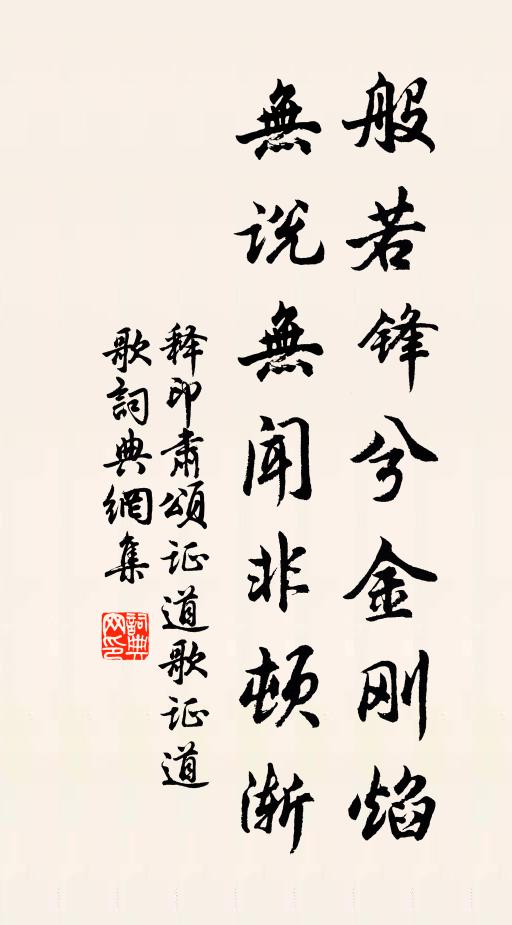 般若锋兮金刚焰
無说無闻非顿渐
释印肃颂证道歌证道
歌詞典網集
詞典
网印